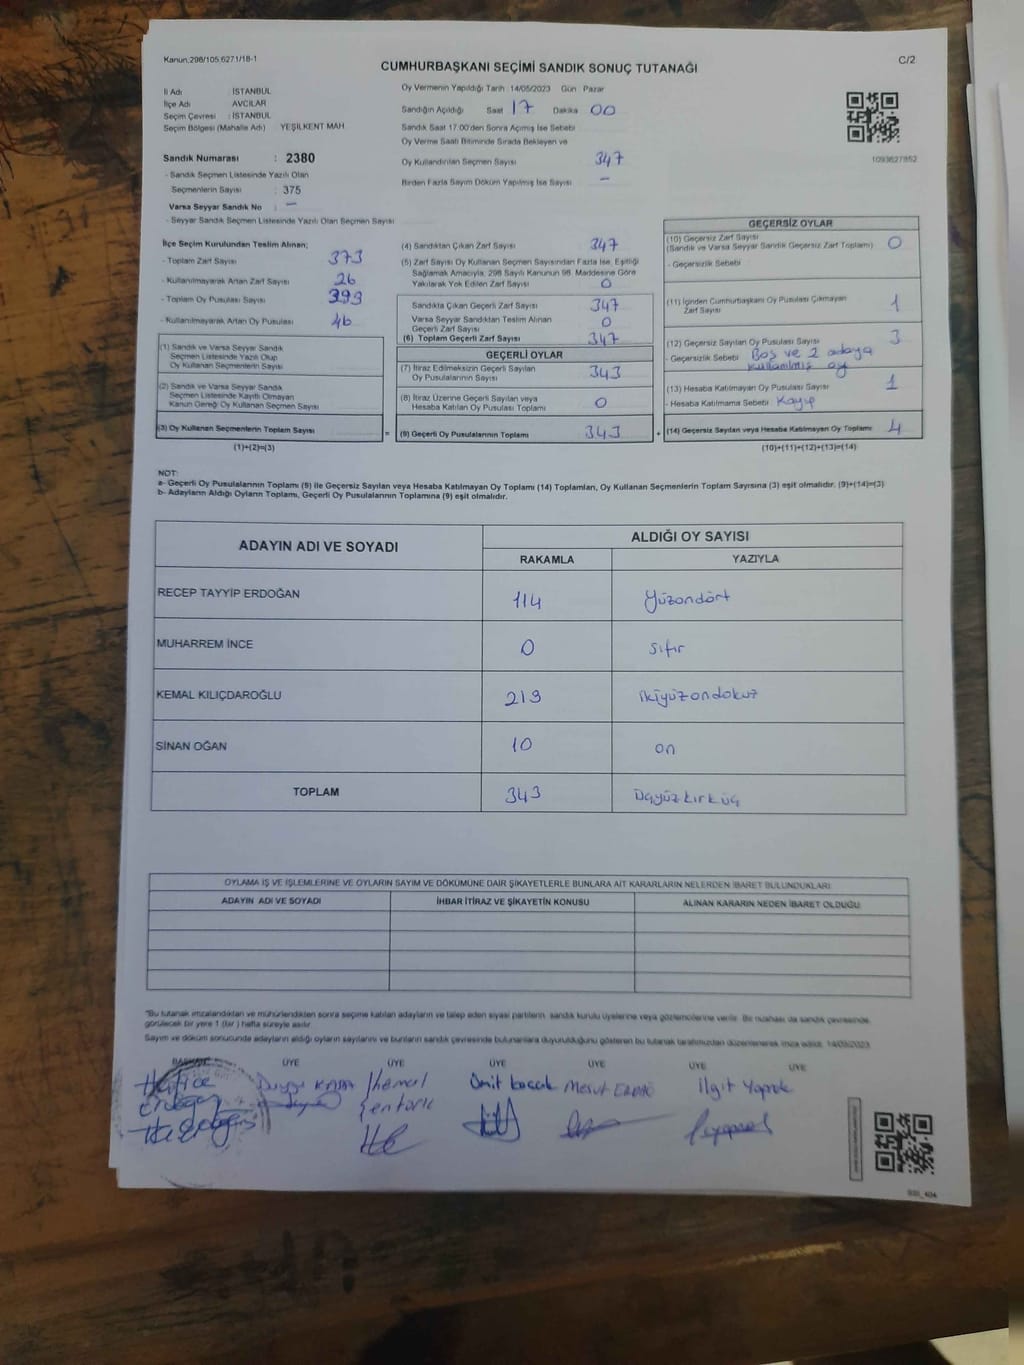 Kanun:298/105,6271/18-1
C/2
CUMHURBAŞKANI SEÇİMİ SANDIK SONUÇ TUTANAĞI
İl Adı : İSTANBUL
İlçe Adı : AVCILAR
Seçim Çevresi : İSTANBUL
Seçim Bölgesi (Mahalle Adı) : YEŞİLKENT MAH.
Sandık Numarası : 2380
- Sandık Seçmen Listesinde Yazılı Olan
Seçmenlerin Sayısı : 375
Varsa Seyyar Sandık No : -
- Seyyar Sandık Seçmen Listesinde Yazılı Olan Seçmen Sayısı
Oy Vermenin Yapıldığı Tarih 14/05/2023 Gün Pazar
Sandığın Açıldığı Saat 17 Dakika 00
Sandık Saat 17:00'den Sonra Açılmış İse Sebebi
Oy Verme Saati Bitiminde Sırada Bekleyen ve
Oy Kullandırılan Seçmen Sayısı 347
Birden Fazla Sayım Döküm Yapılmış İse Sayısı -
1093627852
İlçe Seçim Kurulundan Teslim Alınan;
- Toplam Zarf Sayısı 373
- Kullanılmayarak Artan Zarf Sayısı 26
- Toplam Oy Pusulası Sayısı 393
- Kullanılmayarak Artan Oy Pusulası 46
(1) Sandık ve Varsa Seyyar Sandık
Seçmen Listesinde Yazılı Olup
Oy Kullanan Seçmenlerin Sayısı
(2) Sandık ve Varsa Seyyar Sandık
Seçmen Listesinde Kayıtlı Olmayan
Kanun Gereği Oy Kullanan Seçmen Sayısı
(3) Oy Kullanan Seçmenlerin Toplam Sayısı
(1)+(2)=(3)
(4) Sandıktan Çıkan Zarf Sayısı 347
(5) Zarf Sayısı Oy Kullanan Seçmen Sayısından Fazla İse, Eşitliği
Sağlamak Amacıyla, 298 Sayılı Kanunun 98. Maddesine Göre
Yakılarak Yok Edilen Zarf Sayısı 0
Sandıkta Çıkan Geçerli Zarf Sayısı 347
Varsa Seyyar Sandıktan Teslim Alınan
Geçerli Zarf Sayısı 0
(6) Toplam Geçerli Zarf Sayısı 347
GEÇERLİ OYLAR
(7) İtiraz Edilmeksizin Geçerli Sayılan
Oy Pusulalarının Sayısı 343
(8) İtiraz Üzerine Geçerli Sayılan veya
Hesaba Katılan Oy Pusulası Toplamı 0
= (9) Geçerli Oy Pusulalarının Toplamı 343 +
GEÇERSİZ OYLAR
(10) Geçersiz Zarf Sayısı
(Sandık ve Varsa Seyyar Sandık Geçersiz Zarf Toplamı) 0
- Geçersizlik Sebebi
(11) İçinden Cumhurbaşkanı Oy Pusulası Çıkmayan
Zarf Sayısı 1
(12) Geçersiz Sayılan Oy Pusulası Sayısı 3
- Geçersizlik Sebebi Boş ve 2 adaya
kullanılmış oy
(13) Hesaba Katılmayan Oy Pusulası Sayısı 1
- Hesaba Katılmama Sebebi Kayıp
(14) Geçersiz Sayılan veya Hesaba Katılmayan Oy Toplamı 4
(10)+(11)+(12)+(13)=(14)
NOT:
a- Geçerli Oy Pusulalarının Toplamı (9) ile Geçersiz Sayılan veya Hesaba Katılmayan Oy Toplamı (14) Toplamları, Oy Kullanan Seçmenlerin Toplam Sayısına (3) eşit olmalıdır. (9)+(14)=(3)
b- Adayların Aldığı Oyların Toplamı, Geçerli Oy Pusulalarının Toplamına (9) eşit olmalıdır.
ADAYIN ADI VE SOYADI
ALDIĞI OY SAYISI
RAKAMLA YAZIYLA
RECEP TAYYİP ERDOĞAN 114 Yüzondört
MUHARREM İNCE 0 Sıfır
KEMAL KILIÇDAROĞLU 219 ikiyüzondokuz
SİNAN OĞAN 10 on
TOPLAM 343 Üçyüzkırküç
OYLAMA İŞ VE İŞLEMLERİNE VE OYLARIN SAYIM VE DÖKÜMÜNE DAİR ŞİKAYETLERLE BUNLARA AİT KARARLARIN NELERDEN İBARET BULUNDUKLARI
ADAYIN ADI VE SOYADI İHBAR İTİRAZ VE ŞİKAYETİN KONUSU ALINAN KARARIN NEDEN İBARET OLDUĞU
"Bu tutanak imzalandıktan ve mühürlendikten sonra seçime katılan adayların ve talep eden siyasi partilerin sandık kurulu üyelerine veya gözlemcilerine verilir. Bir nüshası da sandık çevresinde,
görülecek bir yere 1 (bir ) hafta süreyle asılır.
Sayım ve döküm sonucunda adayların aldığı oyların sayılarını ve bunların sandık çevresinde bulunanlara duyurulduğunu gösteren bu tutanak tarafımızdan düzenlenerek imza edildi. 14/05/2023
BAŞKAN ÜYE ÜYE ÜYE ÜYE ÜYE ÜYE
Hatice
Ümit Mesut İlgit Yaprak